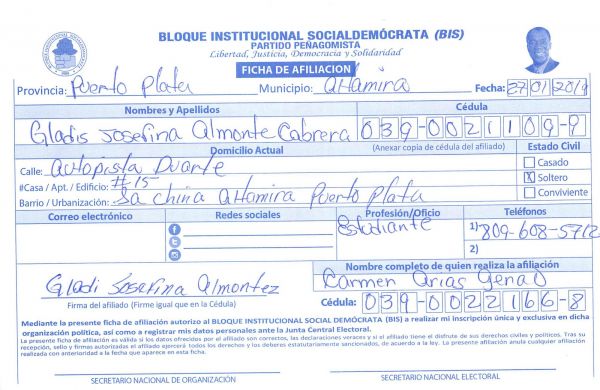 BLOQUE INSTITUCIONAL SOCIALDEMÓCRATA (BIS)
PARTIDO PEÑAGOMISTA
Libertad, Justicia, Democracia y Solidaridad
FICHA DE AFILIACION
Provincia: Puerto Plata Municipio: Altamira Fecha: 27 01 2019
Nombres y Apellidos Cédula
Gladis Josefina Almonte Cabrera 039-0021109-9
Domicilio Actual (Anexar copia de cédula del afiliado) Estado Civil
Calle: Autopista Duarte Casado
#Casa / Apt. / Edificio: #15 X Soltero
Barrio / Urbanización: La China Altamira Puerto Plata Conviviente
Correo electrónico Redes sociales Profesión/Oficio Teléfonos
Estudiante 1) 809-608-5712
2)
Nombre completo de quien realiza la afiliación
Gladi Josefina Almontez Carmen Arias Genao
Firma del afiliado (Firme igual que en la Cédula) Cédula: 039-0022166-8
Mediante la presente ficha de afiliación autorizo al BLOQUE INSTITUCIONAL SOCIAL DEMÓCRATA (BIS) a realizar mi inscripción única y exclusiva en dicha
organización política, así como a registrar mis datos personales ante la Junta Central Electoral.
La presente ficha de afiliación es válida si los datos ofrecidos por el afiliado son correctos, las declaraciones veraces y si el afiliado tiene el disfrute de sus derechos civiles y políticos. Tras su
recepción, sello y firmas autorizadas el afiliado ejercerá todos los derechos y los deberes estatutariamente sancionados, de acuerdo a la ley. La presente afiliación anula cualquier afiliación
realizada con anterioridad a la fecha que aparece en esta ficha.
SECRETARIO NACIONAL DE ORGANIZACIÓN SECRETARIO NACIONAL ELECTORAL